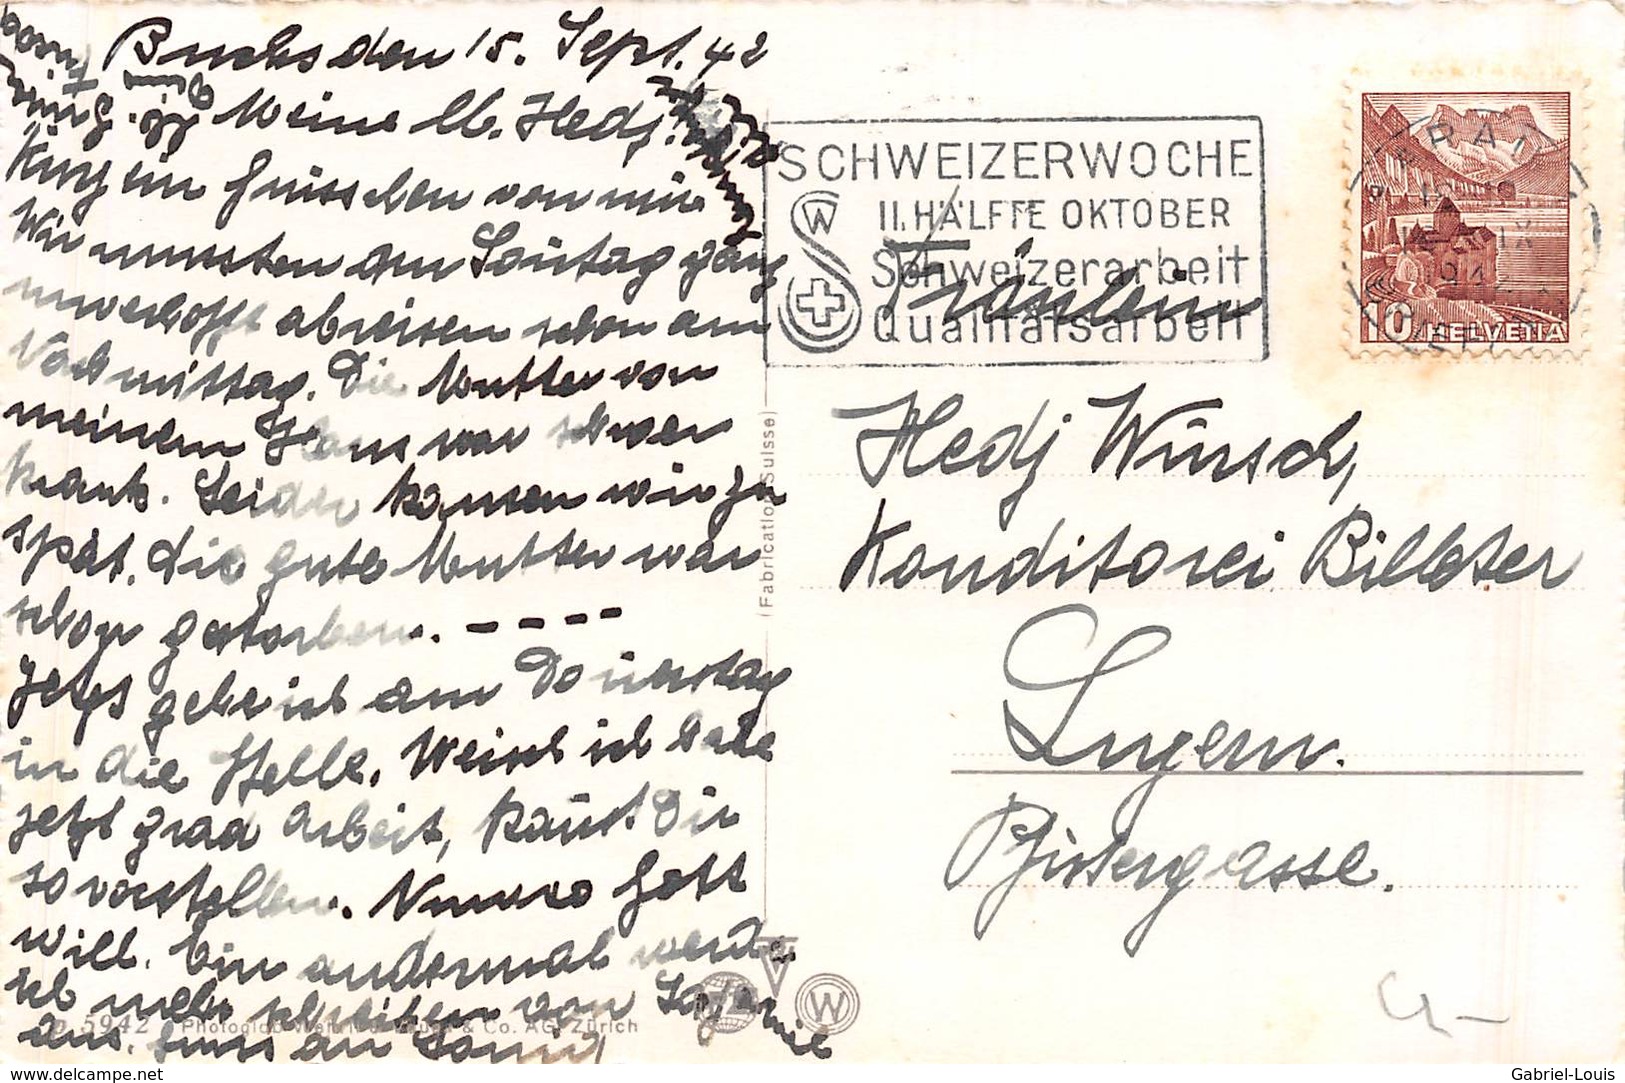 Buchs den 15. Sept. 42
Meine lb. Hedj!
Kurz ein Grüsschen von mir
Wir mussten am Sontag ganz
unverhofft abreisen schon am
Nachmittag. Die Mutter von
meinem Hans war schwer
krank. Leider kamen wir zu
spät. die gute Mutter war
schon gestorben. ----
Jetzt gehe ich am Donerstag
in die Stelle. Weisst ich habe
jetzt grad Arbeit, kanst Dir
so vorstellen. Nun wo Gott
will. Ein andermal werde
ich mehr schreiben von
aus. Gruss an
SCHWEIZERWOCHE
II. HÄLFTE OKTOBER
Schweizerarbeit
Qualitätsarbeit
W
10 HELVETIA
Fräulein
Hedj Würsch,
Konditorei Billeter
Luzern.
Pfistergasse.
(Fabrication Suisse)
5942 Photoglob & Co. AG. Zürich
W
byc.delcampe.net
Gabriel-Louis